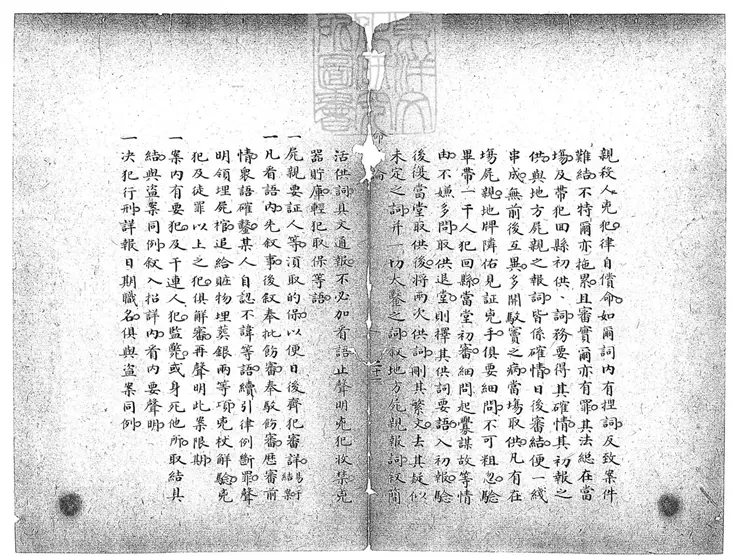 親殺人兇犯律自償命如爾詞內有捏詞反致案件
難結不特爾亦拖累且審實爾亦有罪其法總在當
塲及帶犯回縣初供詞務要得其確情其初報之
供與地方屍親之報詞皆係確情日後審結便一綫
串成無前後互異多開駁竇之病當塲取供凡有在
塲屍親地牌隣佑見証兇手俱要細問不可粗忽驗
畢帶一干人犯回縣當堂初審細問起釁謀故等情
由不嫌多問取供退堂則擇其供詞要語入初報驗
後復當堂取供後將兩次供詞刪其繁文去其疑似
未定之詞并一切大礙之詞叙地方屍親報詞叙簡
活供詞具文通報不必加看語止聲明兇犯收禁兇
器貯庫輕犯取保等語
一屍親要証人等須取的保以便日後齊犯審詳易於結案
一凡看語內先叙事後叙奉批飭審奉駁飭審歷審前
情衆語確鑿某人自認不諱等語續引律例斷罪聲
明領埋屍棺追給賍物埋葬銀兩等項兇杖解驗兇
犯及徒罪以上之犯俱解審再聲明此案限期
一案內有要犯及干連人犯監斃或身死他所取結具
結與盜案同例叙入招詳內看內要聲明
一决犯行刑詳報日期職名俱與盜案同例